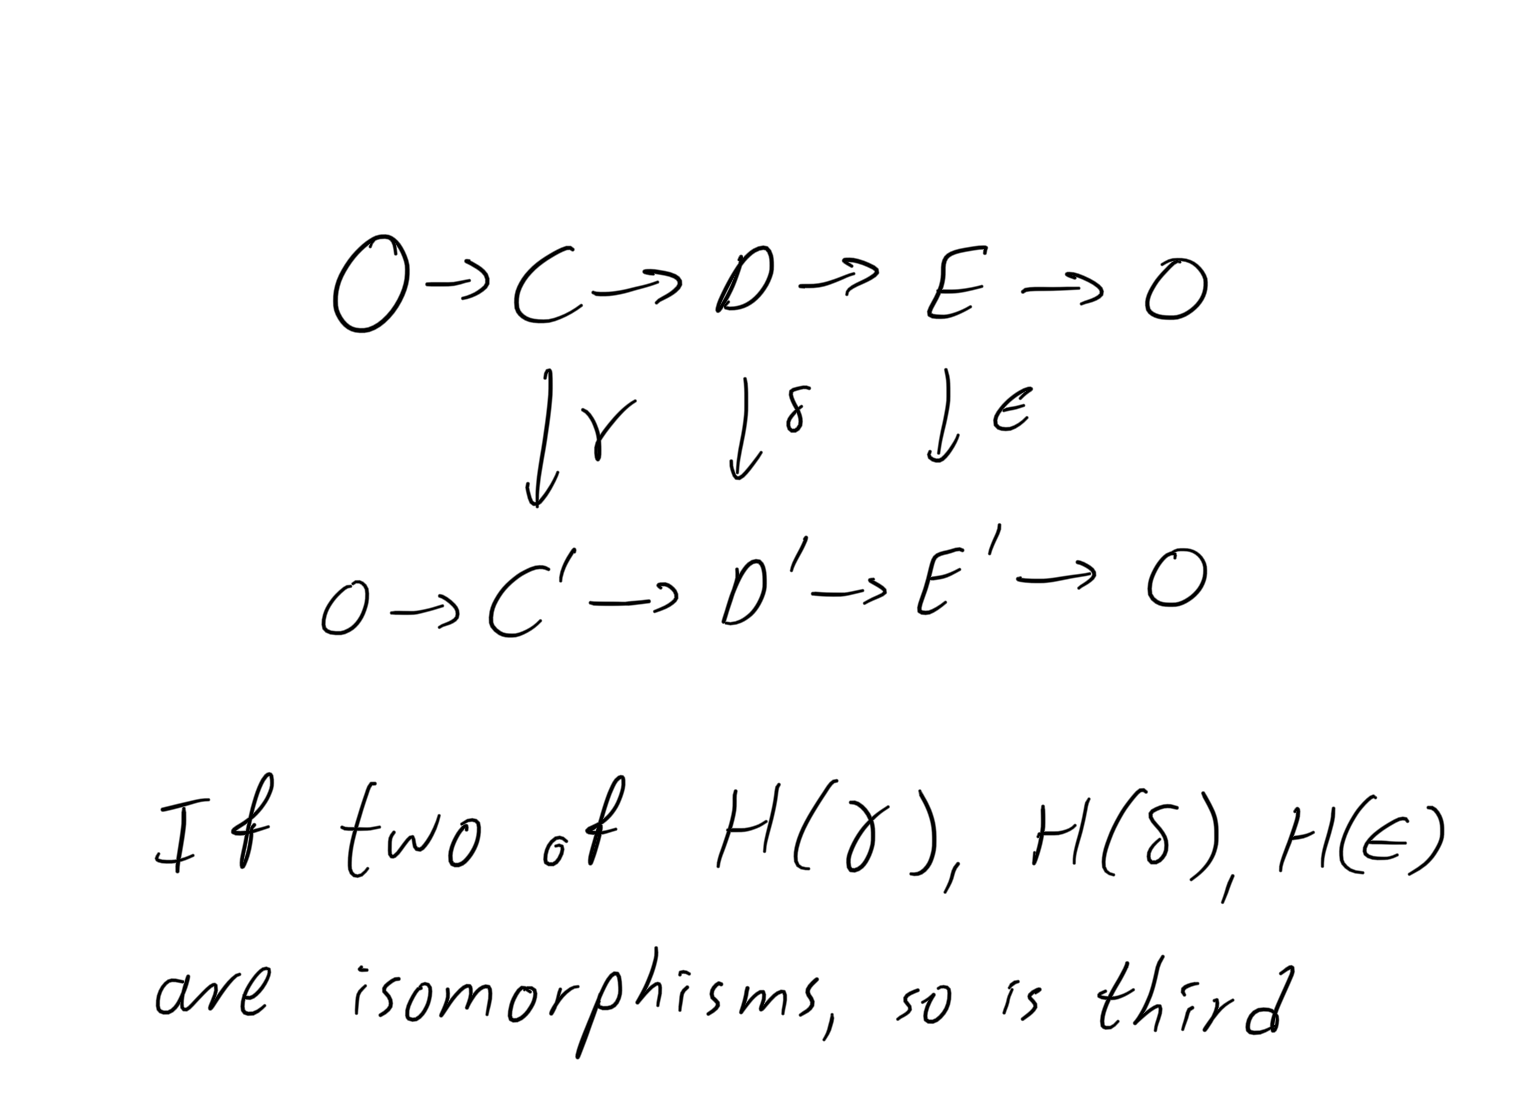 0 → C → D → E → 0
↓ γ ↓ δ ↓ ϵ
0 → C' → D' → E' → 0
If two of H(γ), H(δ), H(ϵ)
are isomorphisms, so is third